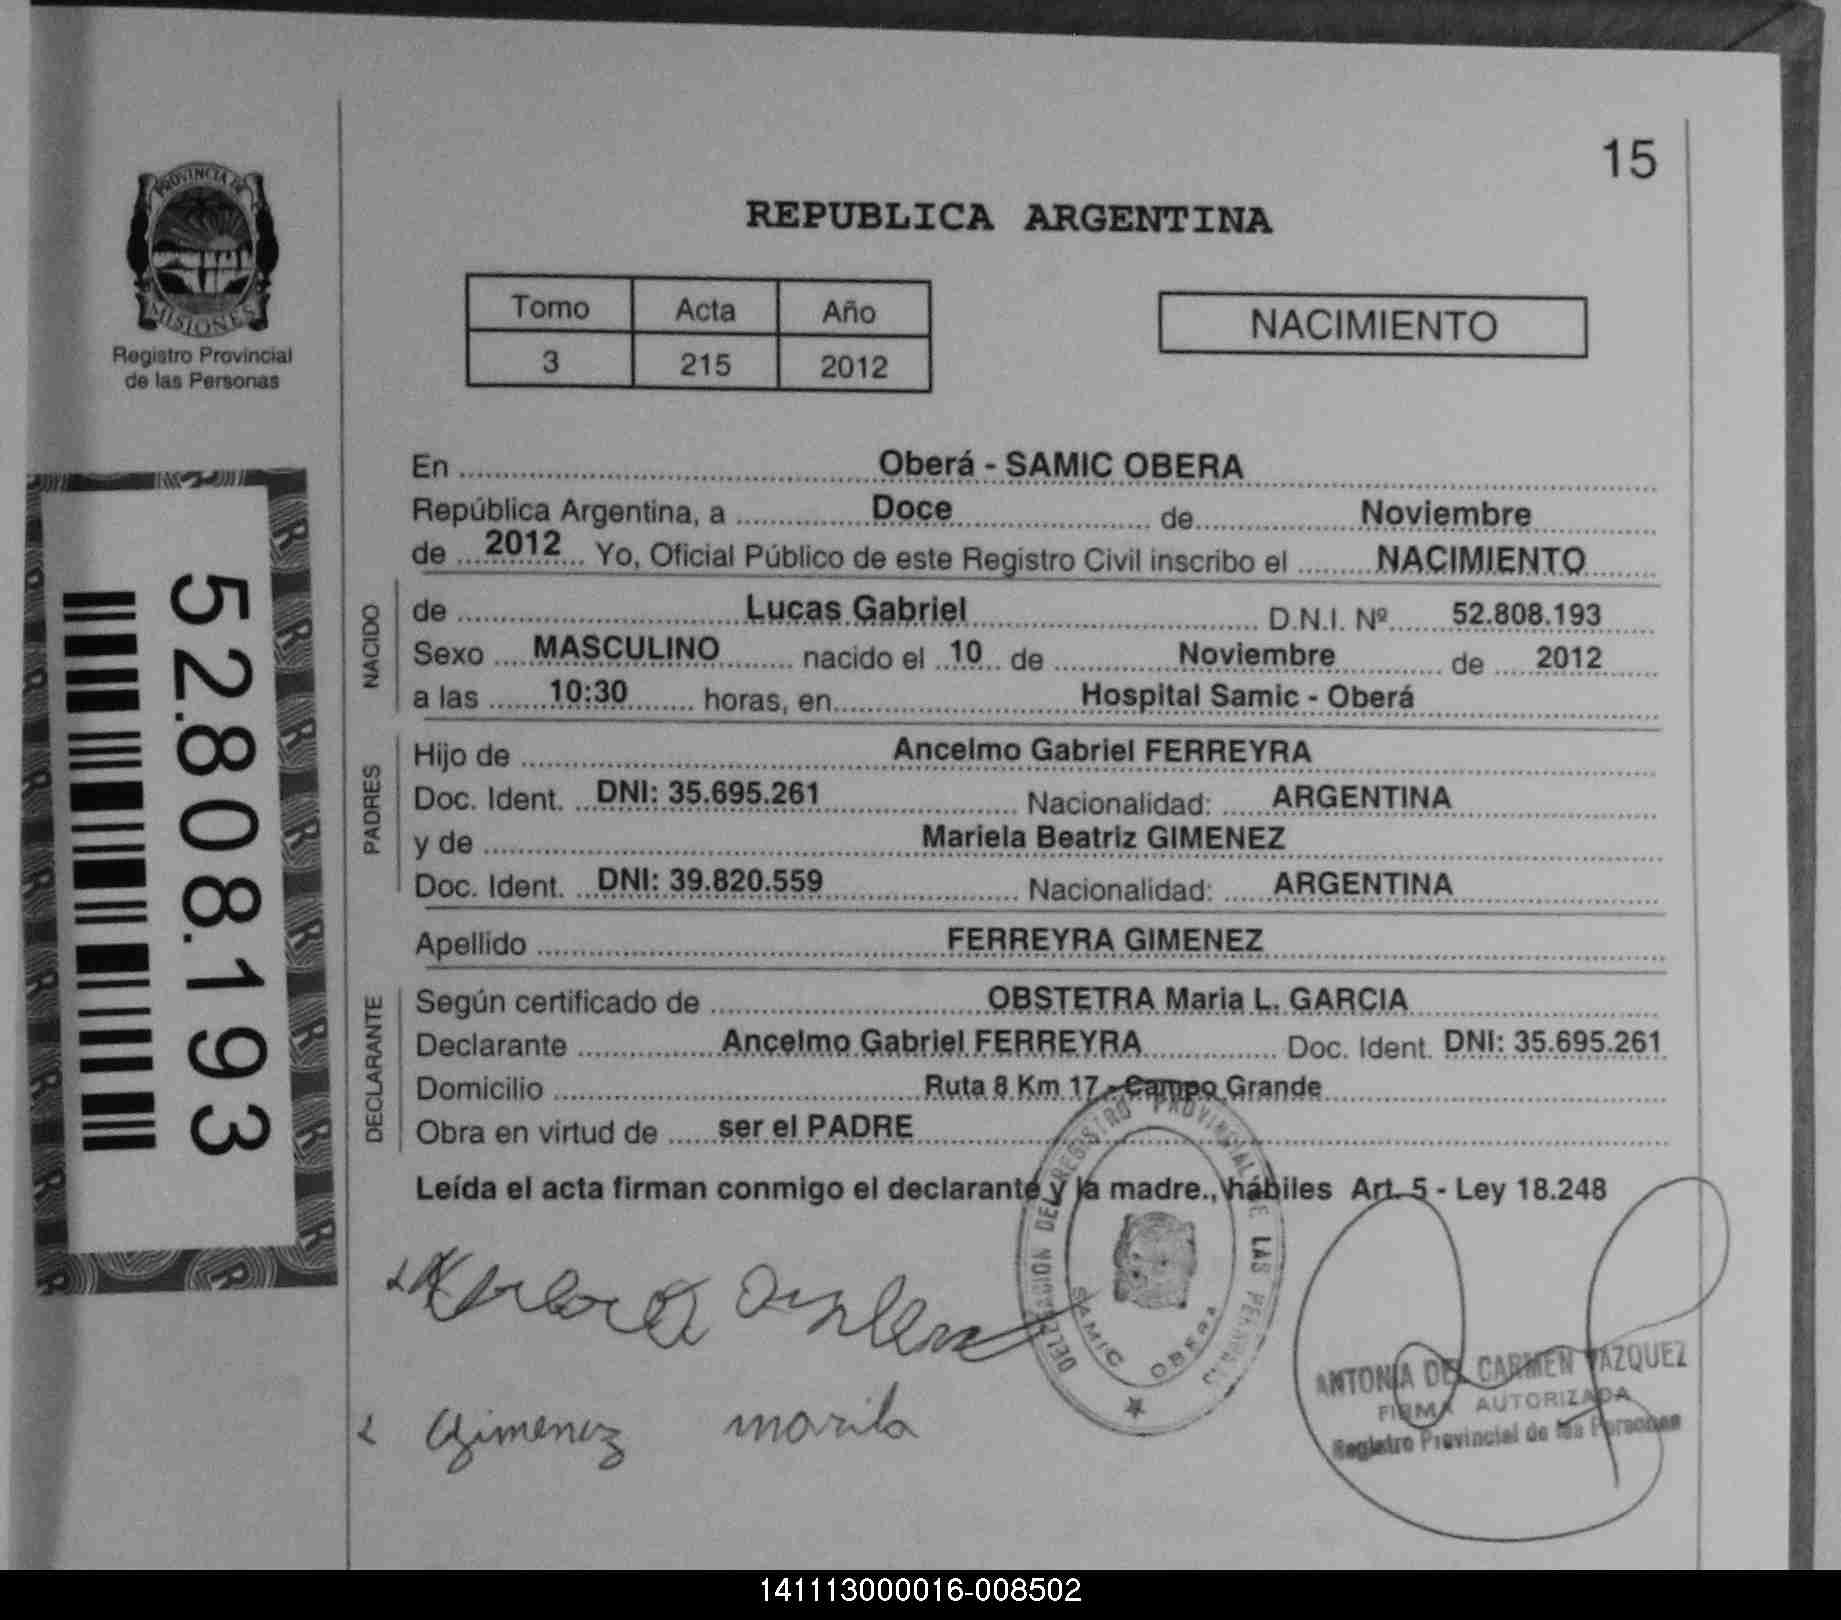 15
PROVINCIA DE
MISIONES
Registro Provincial
de las Personas
REPUBLICA ARGENTINA
Tomo Acta Año
3 215 2012
NACIMIENTO
52.808.193
En Oberá - SAMIC OBERA
República Argentina, a Doce de Noviembre
de 2012 Yo, Oficial Público de este Registro Civil inscribo el NACIMIENTO
NACIDO
de Lucas Gabriel D.N.I. Nº 52.808.193
Sexo MASCULINO nacido el 10 de Noviembre de 2012
a las 10:30 horas, en Hospital Samic - Oberá
PADRES
Hijo de Ancelmo Gabriel FERREYRA
Doc. Ident. DNI: 35.695.261 Nacionalidad: ARGENTINA
y de Mariela Beatriz GIMENEZ
Doc. Ident. DNI: 39.820.559 Nacionalidad: ARGENTINA
Apellido FERREYRA GIMENEZ
DECLARANTE
Según certificado de OBSTETRA Maria L. GARCIA
Declarante Ancelmo Gabriel FERREYRA Doc. Ident. DNI: 35.695.261
Domicilio Ruta 8 Km 17 - Campo Grande
Obra en virtud de ser el PADRE
Leída el acta firman conmigo el declarante y la madre., hábiles Art. 5 - Ley 18.248
DELEGACION DEL REGISTRO PROVINCIAL DE LAS PERSONAS
SAMIC OBERA
Gimenez
ANTONIA DEL CARMEN VAZQUEZ
FIRMA AUTORIZADA
Registro Provincial de las Personas
141113000016-008502